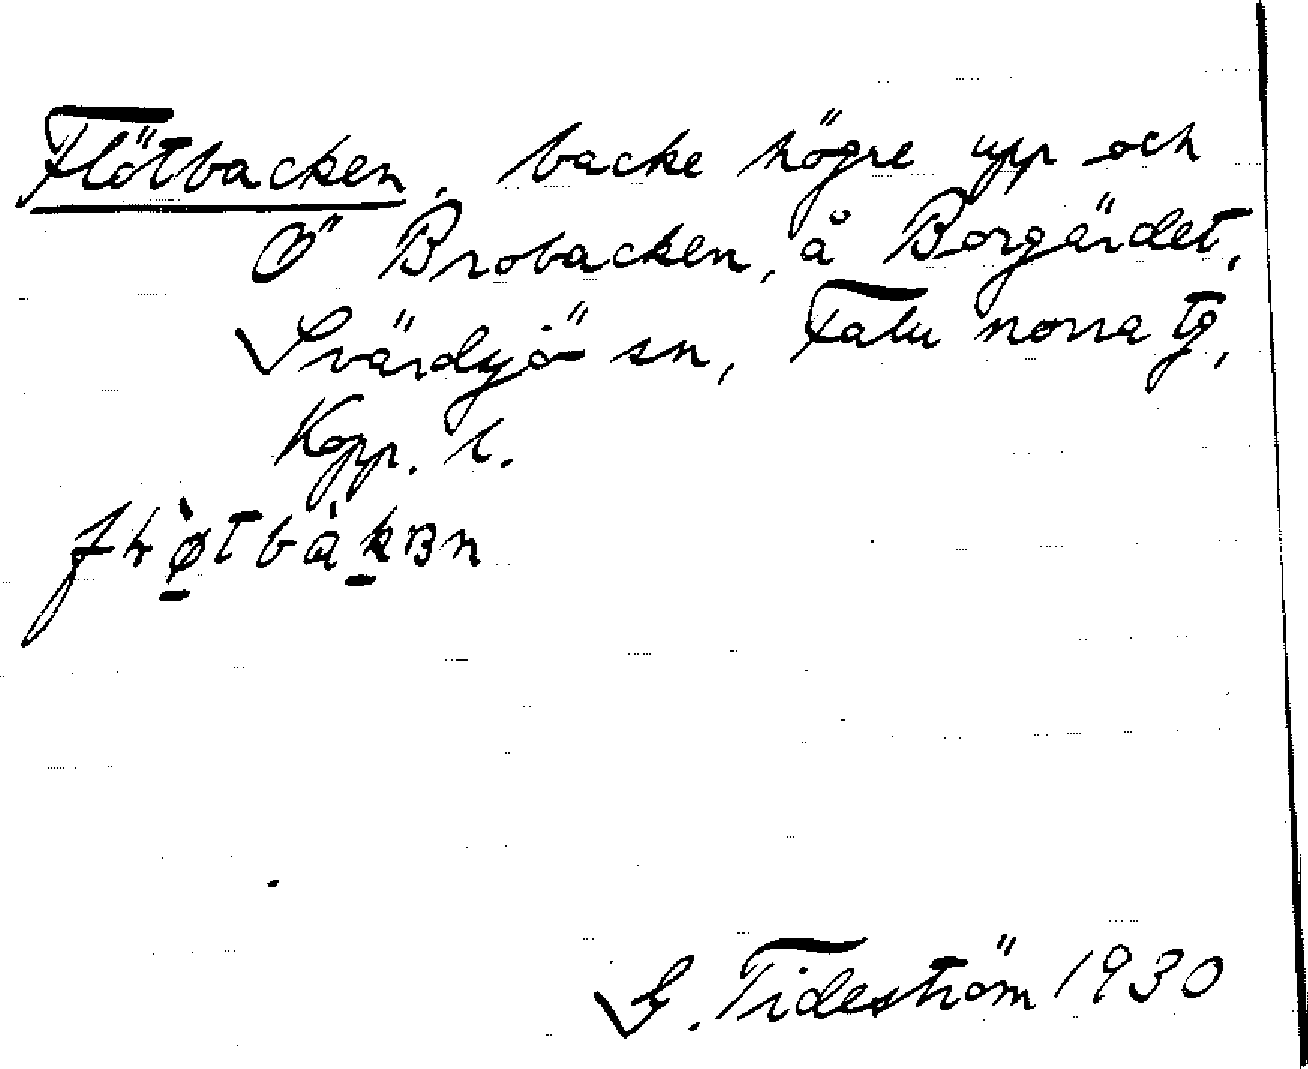 Flötbacken, backe högre upp och
Ö Brobacken, å Borgärdet,
Svärdsjö sn, Falu norra tg,
Kopp. l.
G. Tideström 1930